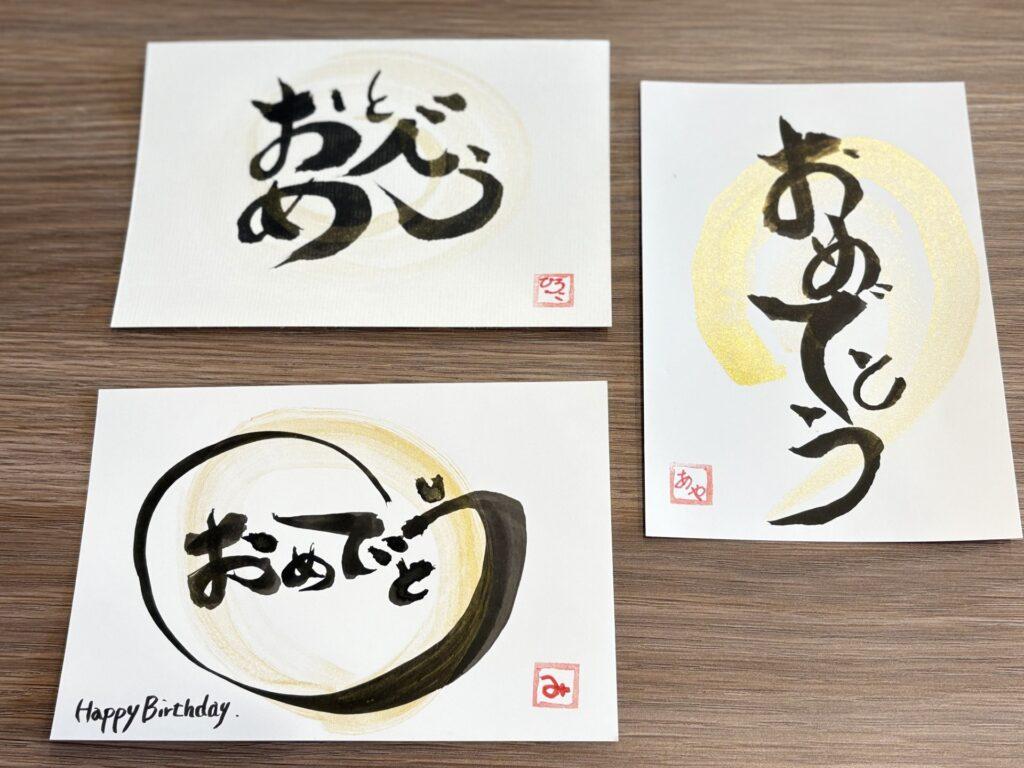 おめでとう
ひろこ
おめでとう
あや
おめでとう
Happy Birthday.
み